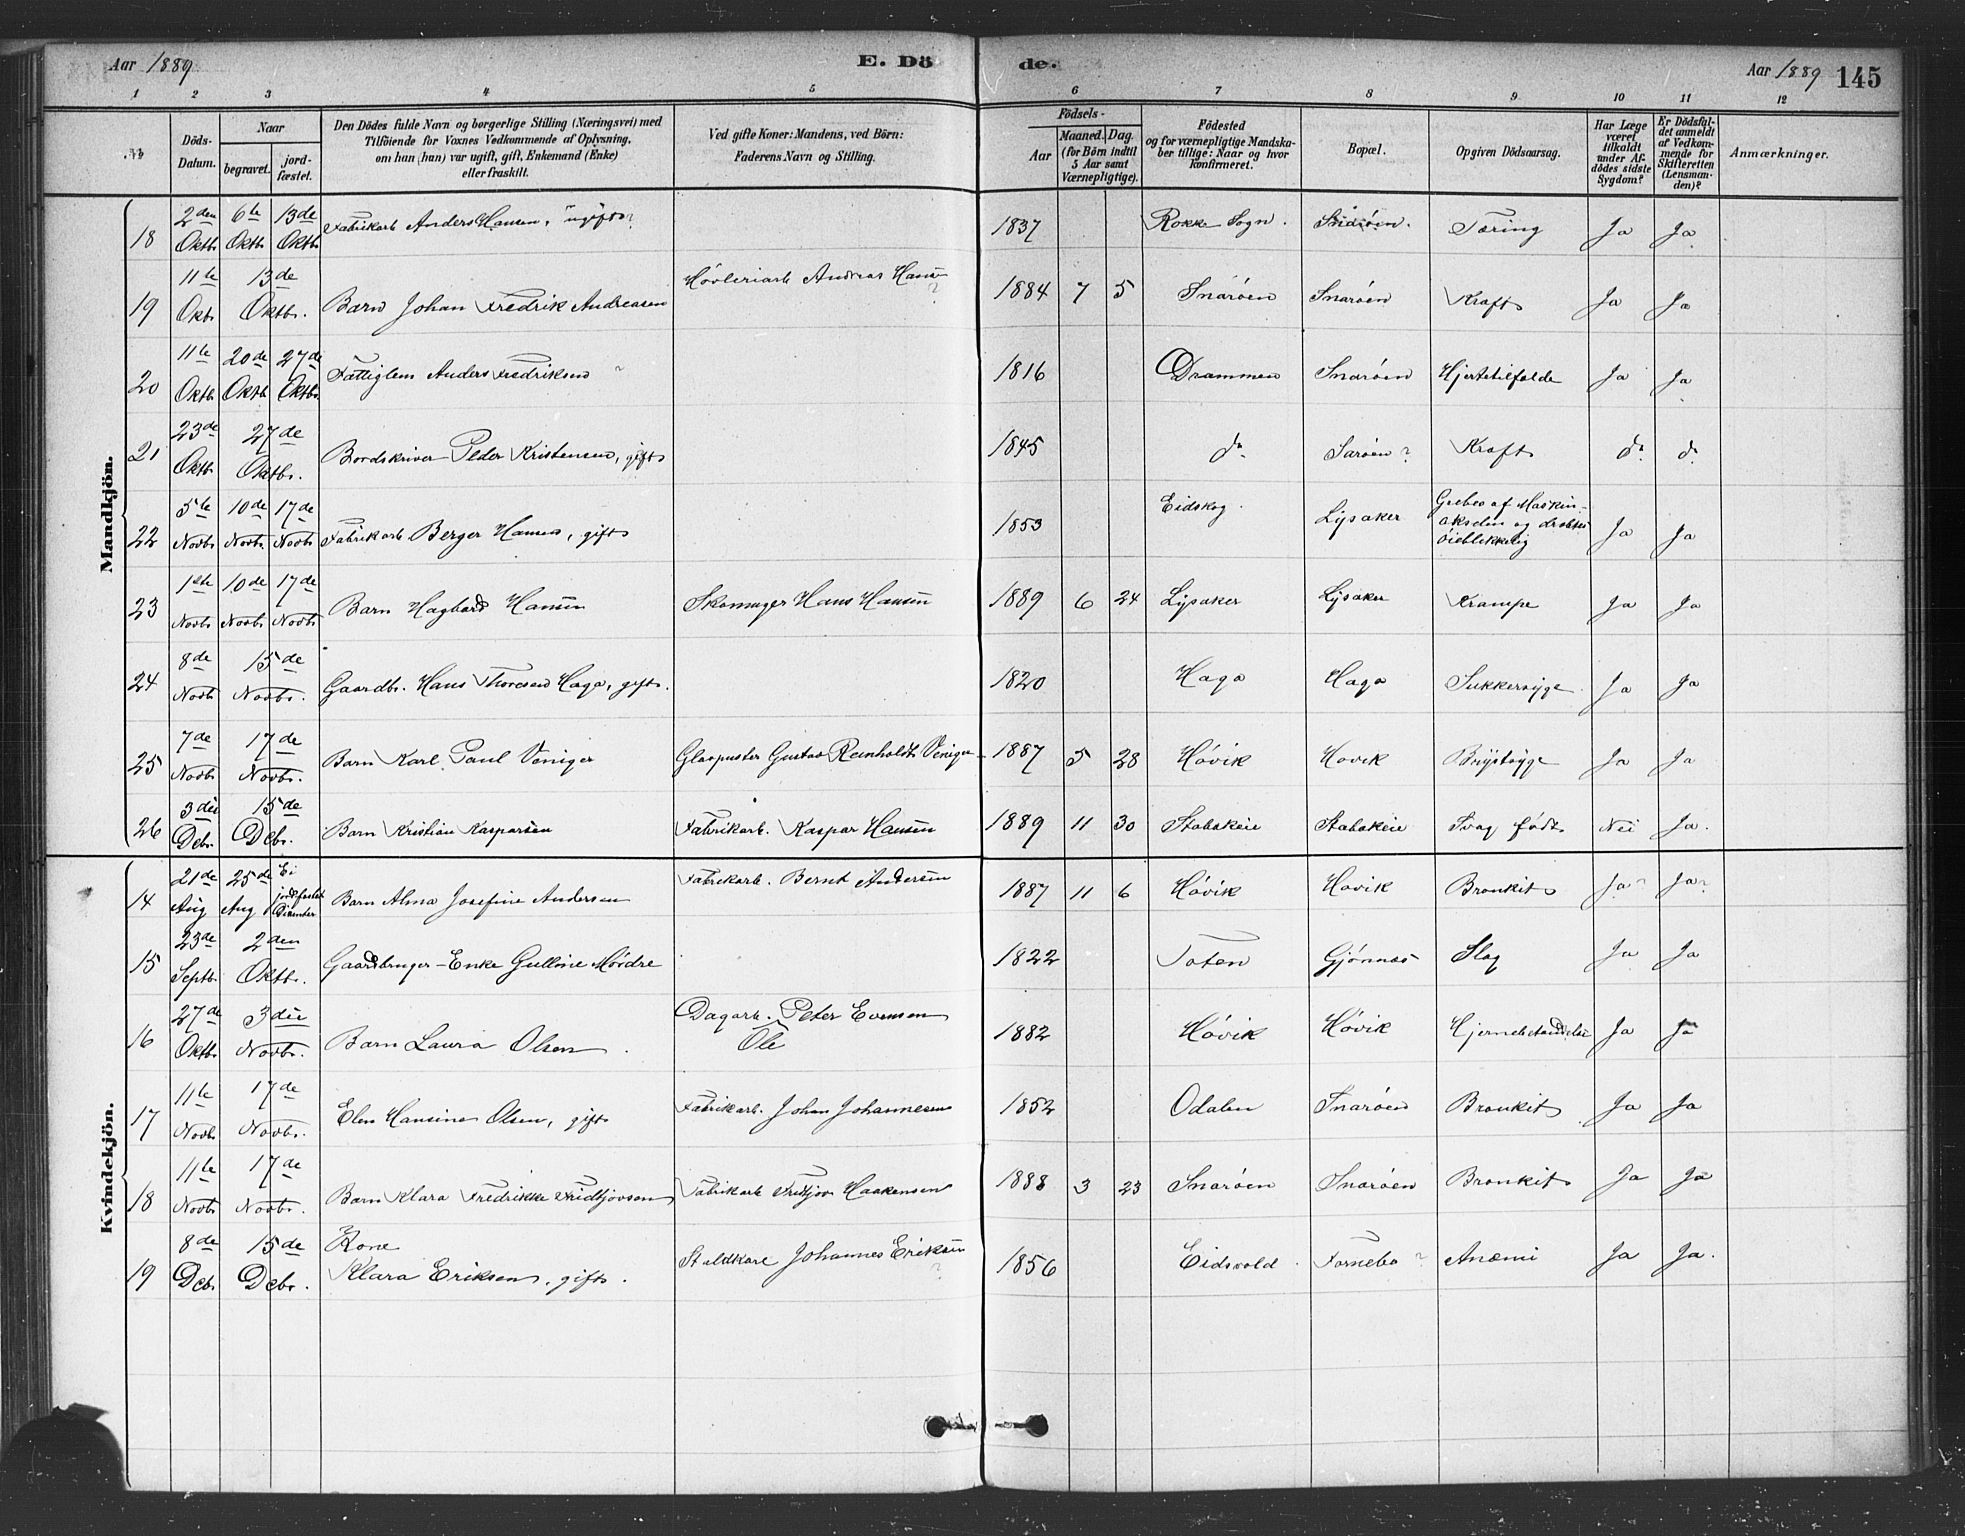 Aar 1889
E. Dö
de.
Aar 1889 145
1 2 3 4 5 6 7 8 9 10 11 12
№
Döds-
Datum.
Naar
begravet.
jord-
fæstet.
Den Dödes fulde Navn og borgerlige Stilling (Næringsvei) med
Tilföiende for Voxnes Vedkommende af Oplysning,
om han (hun) var ugift, gift, Enkemand (Enke)
eller fraskilt.
Ved gifte Koner: Mandens, ved Börn:
Faderens Navn og Stilling.
Födsels-
Aar
Maaned. Dag.
(for Börn indtil
5 Aar samt
Værnepligtige).
Födested
og for værnepligtige Mandska-
ber tillige: Naar og hvor
konfirmeret.
Bopæl.
Opgiven Dödsaarsag.
Har Læge
været
tilkaldt
under Af-
dödes sidste
Sygdom?
Er Dödsfal-
det anmeldt
af Vedkom-
mende for
Skifteretten
(Lensman-
den)?
Anmærkninger.
Mandkjön.
18 2den Oktb. 6te Oktb. 13de Oktb. Fabrikarb Anders Hansen, ugift? 1837 Rokke Sogn. Snarøen. Tæring Ja Ja
19 11te Oktb. 13de Oktbr. Barn Johan Fredrik Andreasen Høvleriarb Andreas Hansen? 1884 7 5 Snarøen Snarøen Kraft Ja Ja
20 11te Oktb. 20de Oktb 27de Oktbr. Fattiglem Anders Fredriksen ? 1816 Drammen Snarøen Hjertetilfælde Ja Ja
21 23de Oktb. 27de Oktbr. Bordskriver Peder Kristensen, gift 1845 do Sarøen? Kraft do do
22 5te Novbr. 10de Novbr. 17de Novbr. Fabrikarb Berger Hansen, gift 1853 Eidskog. Lysaker Grebes af Maskin-
akselen og dræbtes
øieblikkelig Ja Ja
23 1ste Novbr. 10de Novbr. 17de Novbr. Barn Hagbard Hansen Skomager Hans Hansen 1889 6 24 Lysaker Lysaker Krampe Ja Ja
24 8de Novbr. 15de Novbr. Gaardbr. Hans Thoresen Haga, gift. 1820 Haga Haga Sukkersyge Ja Ja
25 7de Novbr. 17de Novbr. Barn Karl Paul Veniger Glaspuster Gustav Reinholdt Veniger 1887 5 28 Høvik Høvik Brystsyge Ja Ja
26 3die Debr. 15de Debr. Barn Kristian Kasparsen Fabrikarb. Kaspar Hansen 1889 11 30 Stabækeie Stabækeie Svag født Nei Ja.
Kvindekjön.
14 21de Aug 25de Aug Ei
jordfæstet
Disenter Barn Alma Josefine Andersen Fabrikarb. Bernt Andersen 1887 11 6 Høvik Høvik Bronkit Ja? Ja?
15 23de Septb. 2den Oktbr. Gaardbruger-Enke Gulline Mørdre 1822 Toten Gjønnæs Slag Ja Ja
16 27de Oktb. 3die Novbr. Barn Laura Olsen Dagarb. Peter Evensen
Ole 1882 Høvik Høvik Hjernebetændelse Ja Ja
17 11te Novbr. 17de Novbr. Elen Hansine Olsen, gift Fabrikarb. Johan Johannesen 1852 Odalen Snarøen Bronkit Ja Ja
18 11te Novbr. 17de Novbr. Barn Klara Fredrikke Fridtjovsen Fabrikarb Fridtjov Haakensen 1888 3 23 Snarøen Snarøen Bronkit Ja Ja
19 8de Debr. 15de Debr. Kone
Klara Eriksen, gift. Staldkarl Johannes Eriksen? 1856 Eidsvold Fornebo? Anæmi Ja Ja.